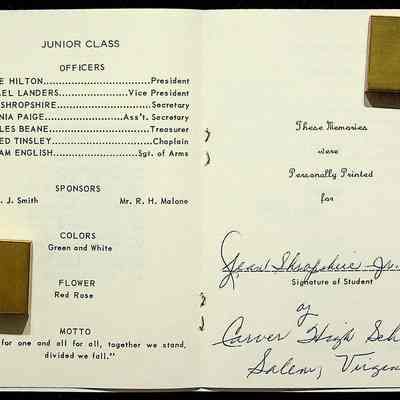 JUNIOR CLASS
OFFICERS
E HILTON..............................President
EL LANDERS.....................Vice President
SHROPSHIRE.........................Secretary
NIA PAIGE....................Ass't. Secretary
LES BEANE............................Treasurer
ED TINSLEY............................Chaplain
AM ENGLISH.......................Sgt. of Arms
SPONSORS
. J. Smith Mr. R. H. Malone
COLORS
Green and White
FLOWER
Red Rose
MOTTO
for one and all for all, together we stand,
divided we fall."
These Memories
were
Personally Printed
for
Shropshire Jr.
Signature of Student
of
Carver High Sch
Salem, Virgin